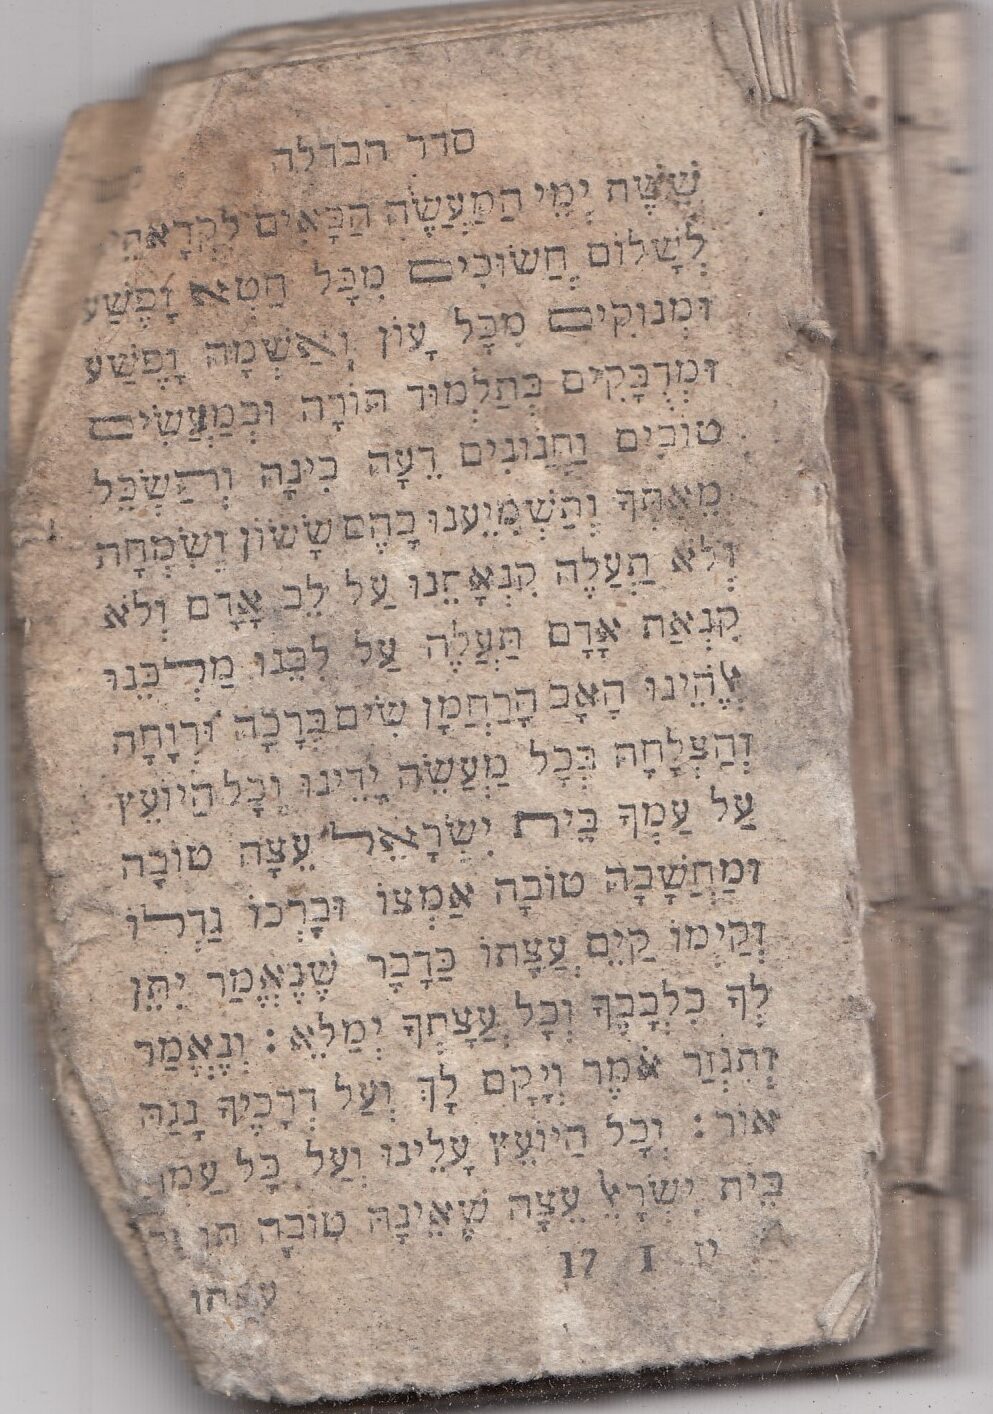 סדר הבדלה
שֵׁשֶׁת יְמֵי הַמַּעֲשֶׂה הַבָּאִים לִקְרָאתֵינוּ
לְשָׁלוֹם חֲשׂוּכִים מִכָּל חֵטְא וָפֶשַׁע
וּמְנוּקִים מִכָּל עָוֹן וְאַשְׁמָה וָפֶשַׁע
וּמְדֻבָּקִים בְּתַלְמוּד תּוֹרָה וּבְמַעֲשִׂים
טוֹבִים וַחֲנוּנִים דֵּעָה בִּינָה וְהַשְׂכֵּל
מֵאִתְּךָ וְהַשְׁמִיעֵנוּ בָהֶם שָׂשׂוֹן וְשִׂמְחָה
וְלֹא תַעֲלֶה קִנְאָתֵנוּ עַל לֵב אָדָם וְלֹא
קִנְאַת אָדָם תַּעֲלֶה עַל לִבֵּנוּ מַלְכֵּנוּ
אֱלֹהֵינוּ הָאָב הָרַחְמָן שִׂים בְּרָכָה וּרְוָחָה
וְהַצְלָחָה בְּכָל מַעֲשֵׂה יָדֵינוּ וְכָל הַיּוֹעֵץ
עַל עַמְּךָ בֵּית יִשְׂרָאֵל עֵצָה טוֹבָה
וּמַחֲשָׁבָה טוֹבָה אַמְּצוֹ וּבָרְכוֹ גַּדְּלוֹ
וְקַיְּמוֹ קַיֵּם עֲצָתוֹ כַּדָּבָר שֶׁנֶּאֱמַר יִתֶּן
לְךָ כִלְבָבֶךָ וְכָל עֲצָתְךָ יְמַלֵּא : וְנֶאֱמַר
וְתִגְזַר אֹמֶר וְיָקָם לָךְ וְעַל דְּרָכֶיךָ נָגַהּ
אוֹר : וְכָל הַיּוֹעֵץ עָלֵינוּ וְעַל כָּל עַמְּךָ
בֵּית יִשְׂרָאֵל עֵצָה שֶׁאֵינָהּ טוֹבָה
יז I 17
עצתו